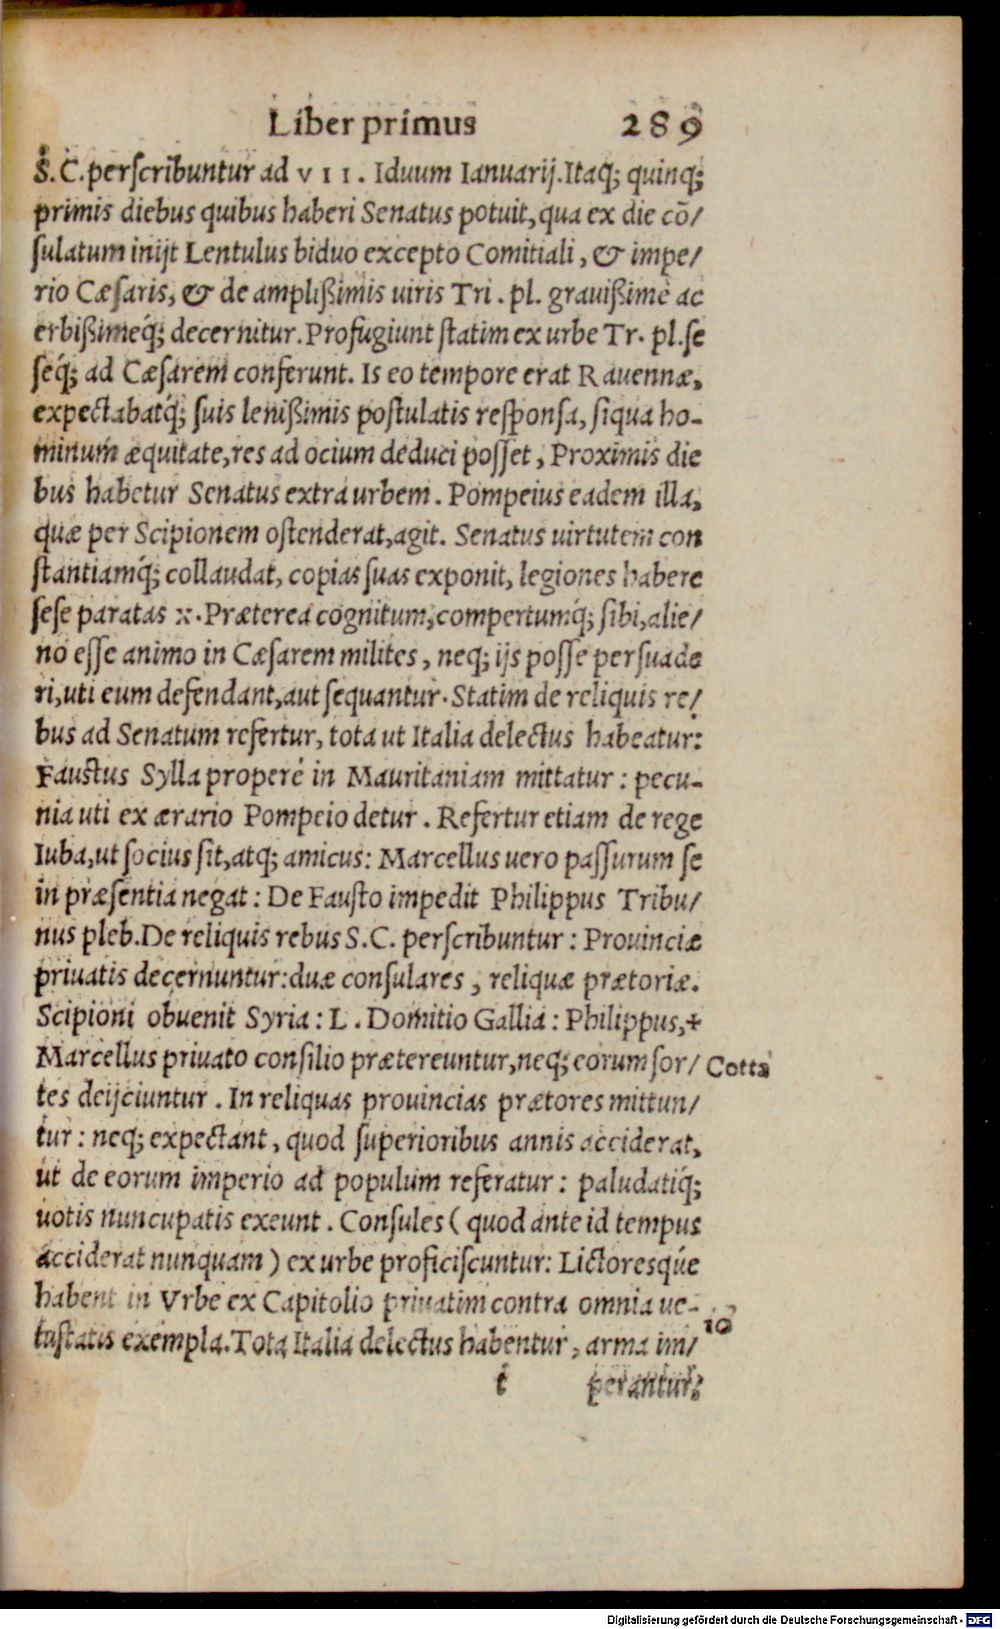 Liber primus 289
S.C.perscribuntur ad VII. Iduum Ianuarij.Itaq; quinq;
primis diebus quibus haberi Senatus potuit,qua ex die cō/
sulatum inijt Lentulus biduo excepto Comitiali, & impe/
rio Cæsaris, & de amplißimis uiris Tri. pl. grauißimè ac
erbißimeq́; decernitur. Profugiunt statim ex urbe Tr. pl.se
seq́; ad Cæsarem conferunt. Is eo tempore erat Rauennæ,
expectabatq́; suis lenißimis postulatis responsa, siqua ho-
minum æquitate,res ad ocium deduci posset, Proximis die
bus habetur Senatus extra urbem. Pompeius eadem illa,
quæ per Scipionem ostenderat,agit. Senatus uirtutem con
stantiamq́; collaudat, copias suas exponit, legiones habere
sese paratas x. Præterea cognitum,compertumq́; sibi,alie/
no esse animo in Cæsarem milites, neq; ijs posse persuade
ri,uti eum defendant,aut sequantur. Statim de reliquis re/
bus ad Senatum refertur, tota ut Italia delectus habeatur:
Faustus Sylla properè in Mauritaniam mittatur: pecu-
nia uti ex ærario Pompeio detur. Refertur etiam de rege
Iuba,ut socius sit,atq; amicus: Marcellus uero passurum se
in præsentia negat: De Fausto impedit Philippus Tribu/
nus pleb.De reliquis rebus S.C. perscribuntur: Prouinciæ
priuatis decernuntur:duæ consulares, reliquæ prætoriæ.
Scipioni obuenit Syria: L. Domitio Gallia: Philippus,+
Marcellus priuato consilio prætereuntur,neq; eorum sor/ Cotta
tes deijciuntur. In reliquas prouincias prætores mittun/
tur: neq; expectant, quod superioribus annis acciderat,
ut de eorum imperio ad populum referatur: paludatiq́;
uotis nuncupatis exeunt. Consules (quod ante id tempus
acciderat nunquam) ex urbe proficiscuntur: Lictoresque
habent in Vrbe ex Capitolio priuatim contra omnia ue-
tustatis exempla.Tota Italia delectus habentur, arma im/ 10
t perantur:
Digitalisierung gefördert durch die Deutsche Forschungsgemeinschaft - DFG